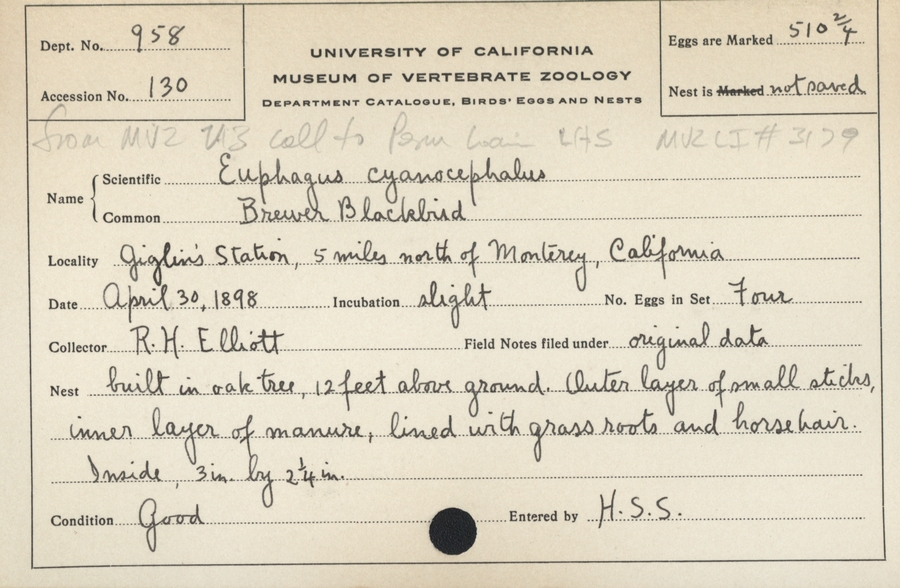 Dept. No. 958
Accession No. 130
UNIVERSITY OF CALIFORNIA
MUSEUM OF VERTEBRATE ZOOLOGY
DEPARTMENT CATALOGUE, BIRDS' EGGS AND NESTS
Eggs are Marked 510 2/4
Nest is Marked not saved
from MVZ call to MVZ LI # 3179
Name
Scientific Euphagus cyanocephalus
Common Brewer Blackbird
Locality Giglin's Station, 5 miles north of Monterey, California
Date April 30, 1898 Incubation slight No. Eggs in Set Four
Collector R. H. Elliott Field Notes filed under original data
Nest built in oak tree, 12 feet above ground. Outer layer of small sticks,
inner layer of manure, lined with grass roots and horsehair.
Inside, 3 in. by 2 1/4 in.
Condition Good Entered by H.S.S.